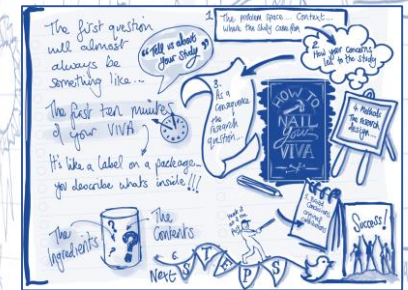 The first question
will almost
always be
something like...
"Tell us about
your study."
The first ten minutes
of your VIVA
It's like a label on a package...
you describe whats inside!!!
The
Ingredients
The
Contents
1. The problem space... Context...
Where the study came from
2.
How your concerns
led to the study
3.
As a
Consequence
the
research
question...
HOW TO
NAIL
your
VIVA
4 Methods
The research
design...
5. Good
Conclusions
original
contributions
6.
Next STEPS
Success!